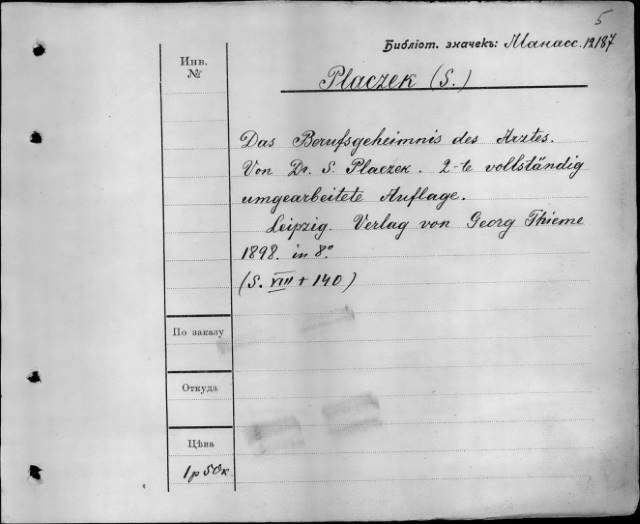 5
Библіот. значекъ: Манасс. 12187
Инв.
№
Placzek (S.)
Das Berufsgeheimnis des Arztes.
Von Dr. S. Placzek. 2-te vollständig
umgearbeitete Auflage.
Leipzig. Verlag von Georg Thieme
1898. in 8°
(S. VIII + 140)
По заказу
Откуда
Цѣна
1 р 50 к